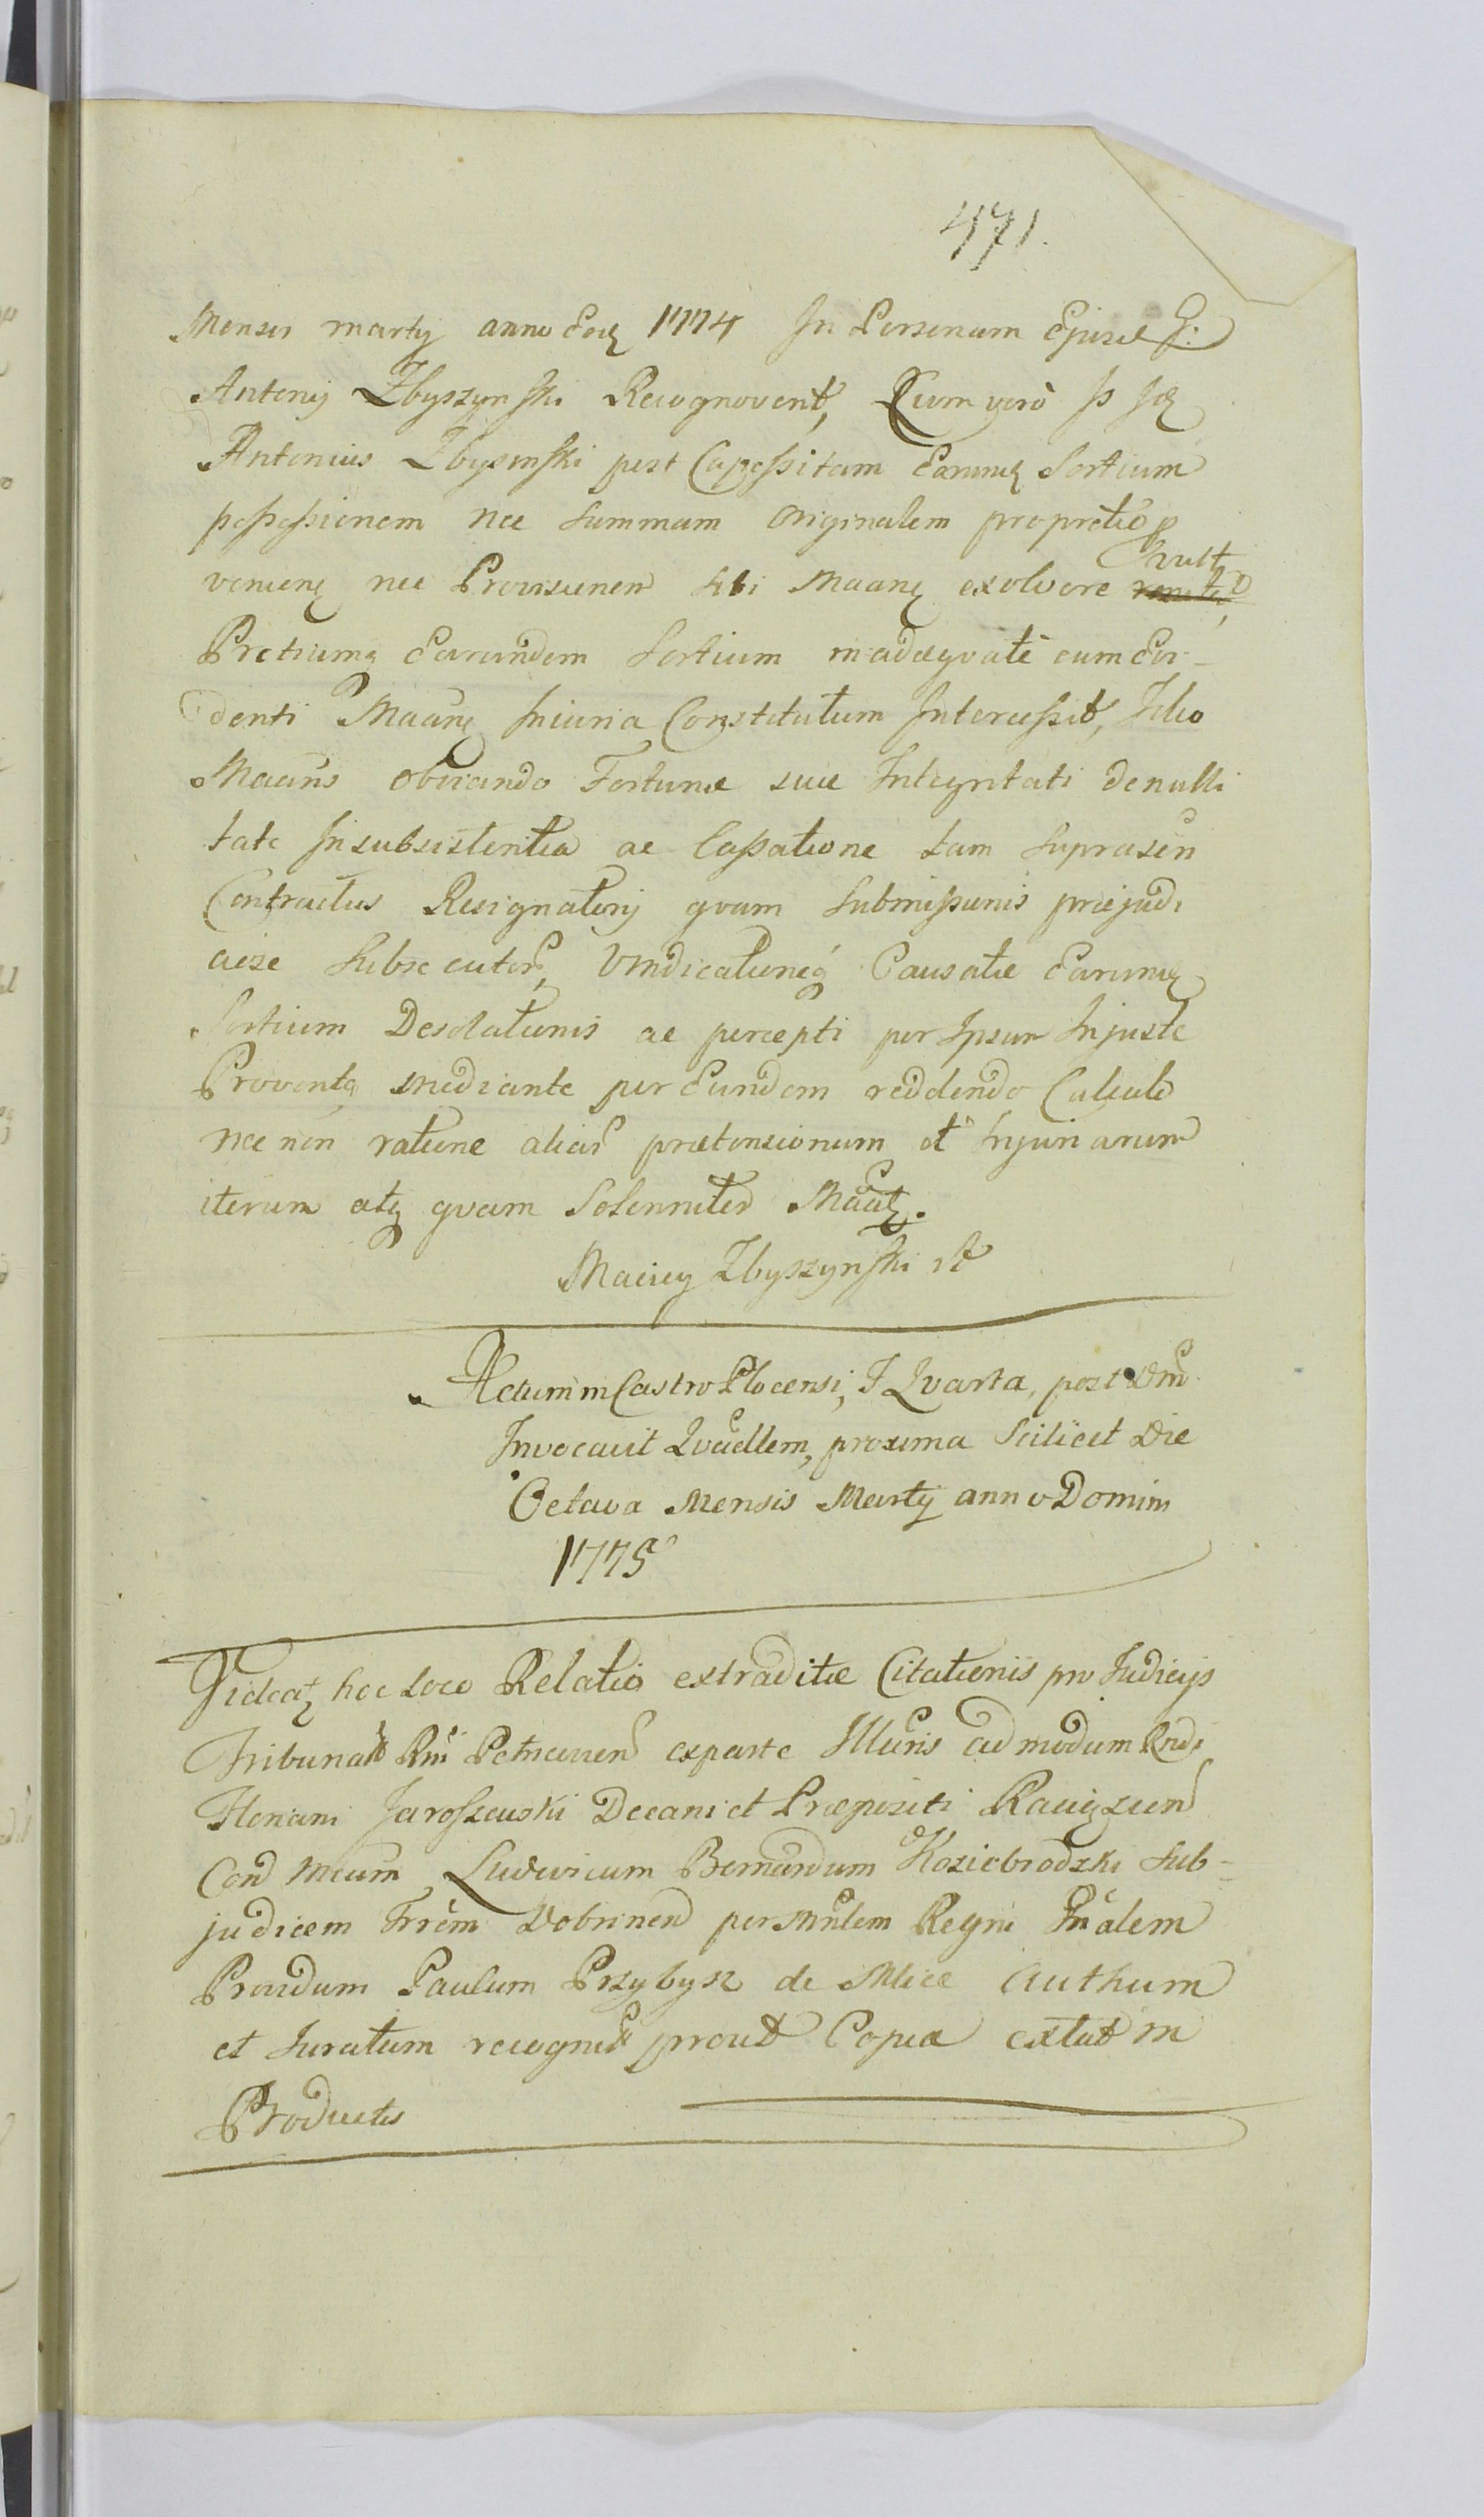 471.
Mensis martij anno Eod 1774 In Personam Ejusd G:
Antonij Zbyszynski Recognoverit, Qium verò Is Id
Antonius Zbysinski post Capessitam Earumd Sortium
possessionem nec Summam originalem pro pretio p
vult
venien nec Provisionem sibi Maan exolvere
Pretiumq Earundem Sortium inadæqvatè cum Evi-
denti Maanq Iniuria Constitutum Intercessit, Ideo
Maans obviando Fortunæ suæ Integritati de nulli
tate Insubsistentia ac Cassatione tam Suprascñ
Contractus Resignatorij qvam Submissionis præjudi
ciose Subsecutor, Vindicationeq Causatæ Earumd
Sortium Desolationis ac percepti per Ipsum Injuste
Provents mediante per Eundem reddendo Calculo
nec non ratione aliar prætensionum et Injuriarum
iterum atq qvam Solenniter Maat.
Maciey Zbyszynski
Actum in Castro Plocensi, F Qvarta, post Dm̃
Invocavit Qvadllem, proxima Scilicet Die
Octava Mensis Martij anno Domini
1775
Videat hoc Loco Relatio extraditæ Citationis pro Judicijs
Tribunal Rni Petricoven ex parte Illuris admodum Rndi
Floriani Jaroszewski Decani et Præpositi Raciązien
Con Mcum Ludovicum Bernardum Koziebrodzki Sub-
judicem Trrem Dobrinen per Mnlem Regni Gnalem
Providum Paulum Przybysz de Mlice Authum
et Juratum recognit prout Copia extat in
Productis